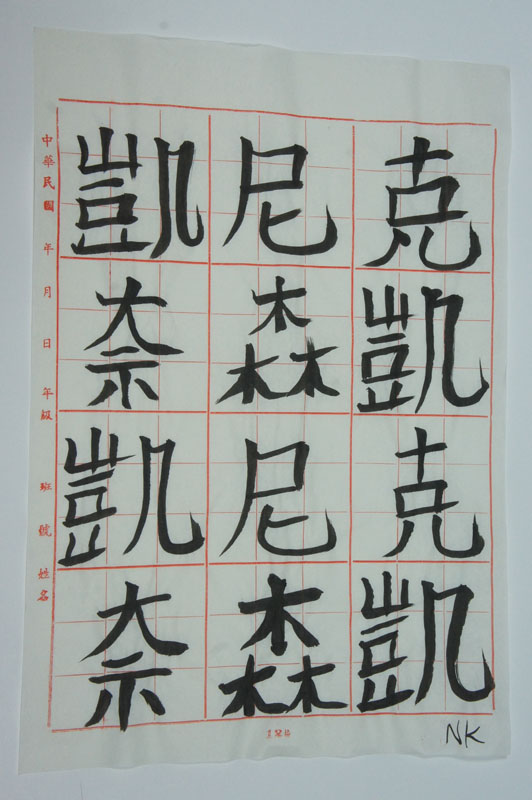 克凱克凱
尼森尼森
凱奈凱奈
中華民國 年 月 日 年級 班 號 姓名
NK